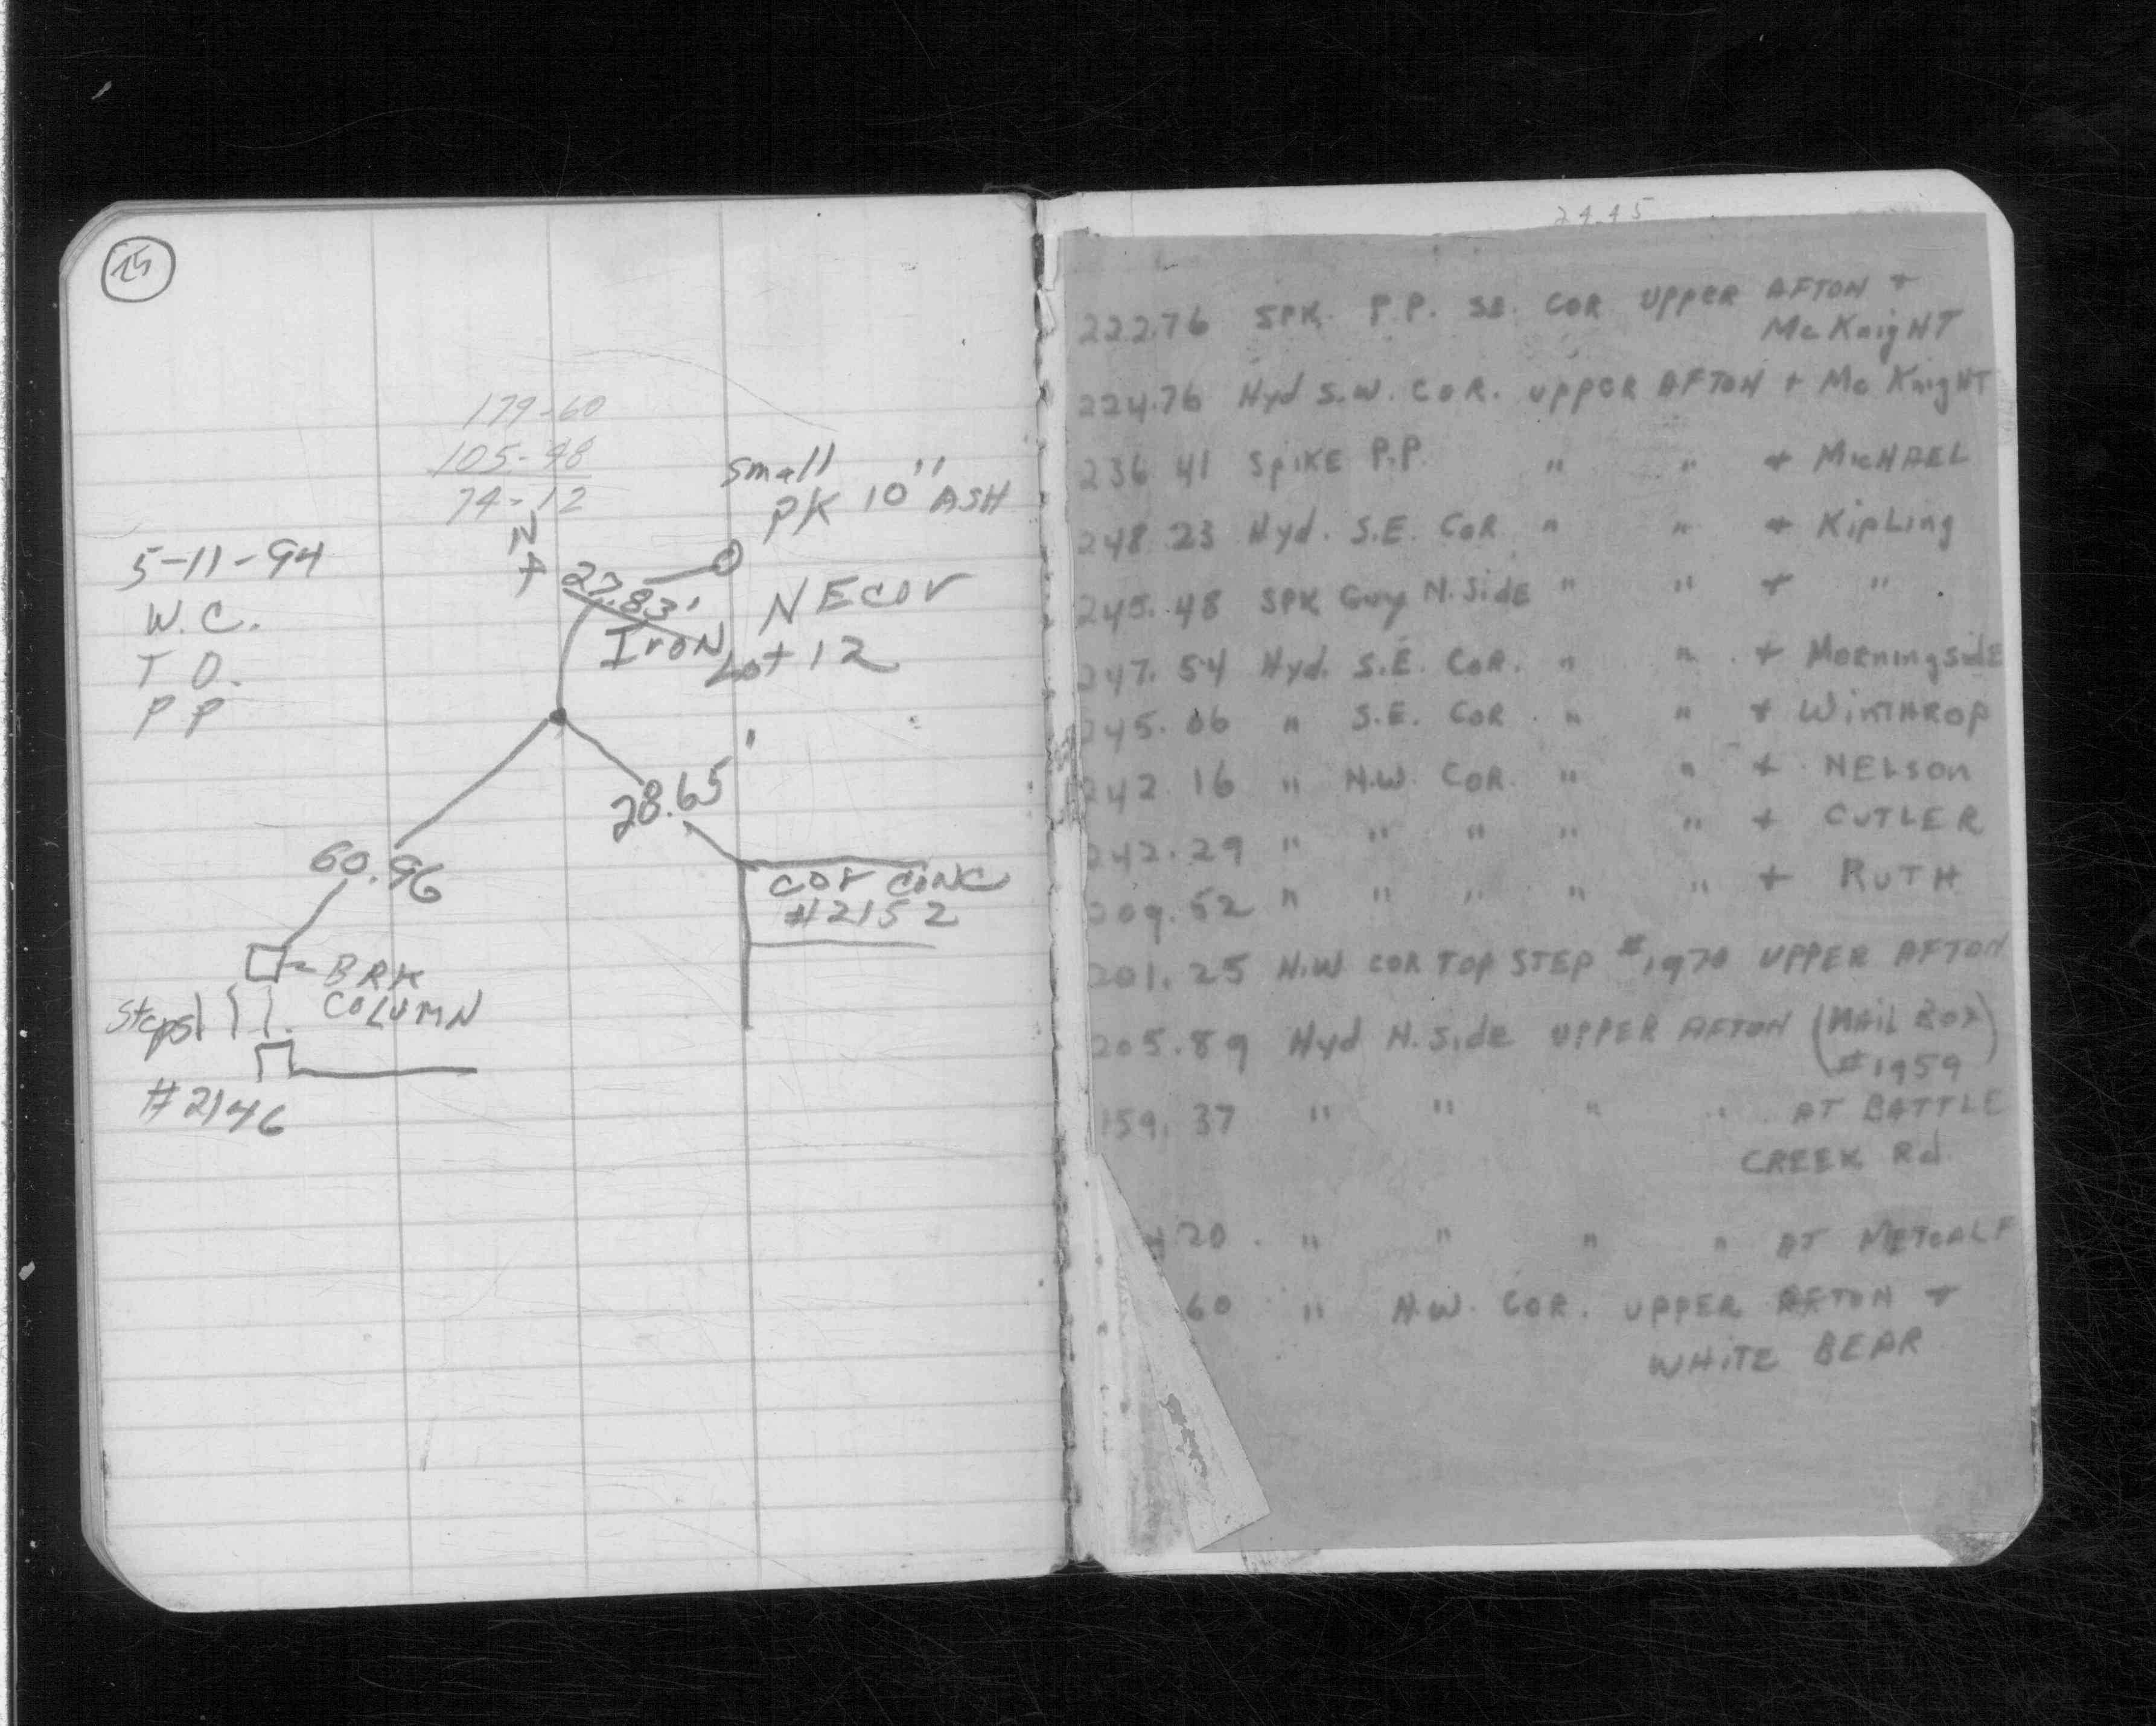 15
179-60
105-48
74-12
small
PK 10" ASH
N
5-11-94
W.C.
T O.
P P
27.83'
IroN
NE cor
Lot 12
28.65'
60.96
cor conc
#2152
BRK
COLUMN
Steps
#2146
24.45
222.76 SPK. P.P. SE. COR UPPER AFTON +
Mc KnigHT
224.76 Hyd S.W. COR. UPPER AFTON + Mc KnigHT
236 41 SpiKE P.P. " " + MicHAEL
248 23 Hyd. S.E. COR " " + KipLing
245.48 SPK Guy N.Side " " + "
247.54 Hyd. S.E. COR. " " + Morningside
245.06 " S.E. COR. " " + WiNTHROP
242 16 " N.W. COR. " " + NELson
242.29 " " " " " + CUTLER
209.52 " " " " " + RUTH
201.25 N.W COR TOP STEP #1970 UPPER AFTON
205.89 Hyd N.Side UPPER AFTON (MAiL BOX)
(#1959)
159.37 " " " " AT BATTLE
CREEK Rd.
20 " " " " AT METCALF
60 " N.W. COR. UPPER AFTON +
WHiTE BEAR